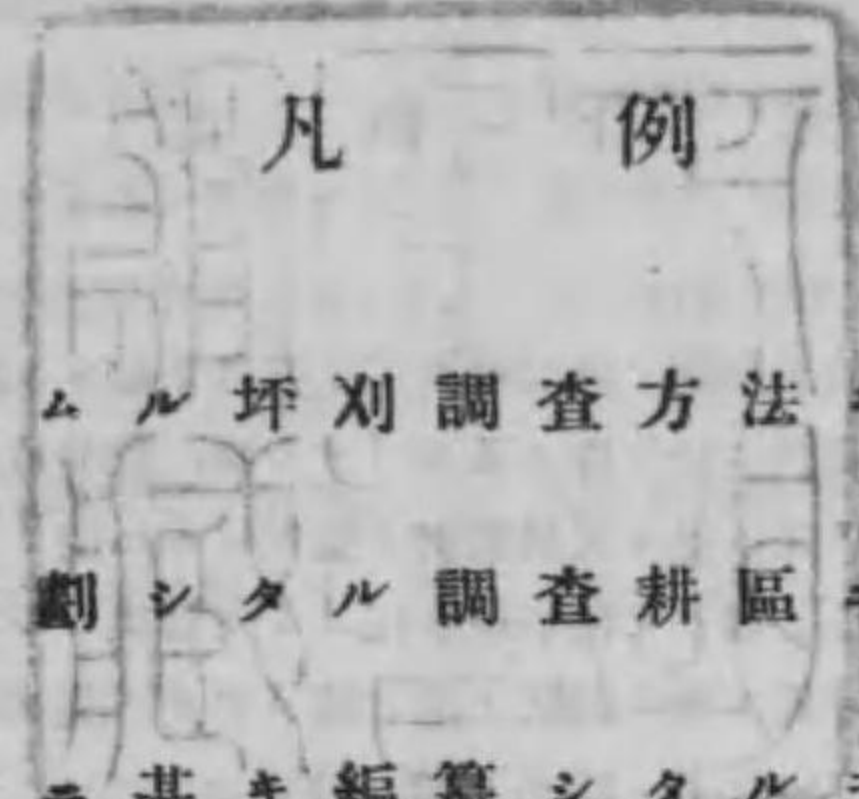 凡例
ムル坪刈調査方法
劃シタル調査耕區
ニ基キ編纂シタル